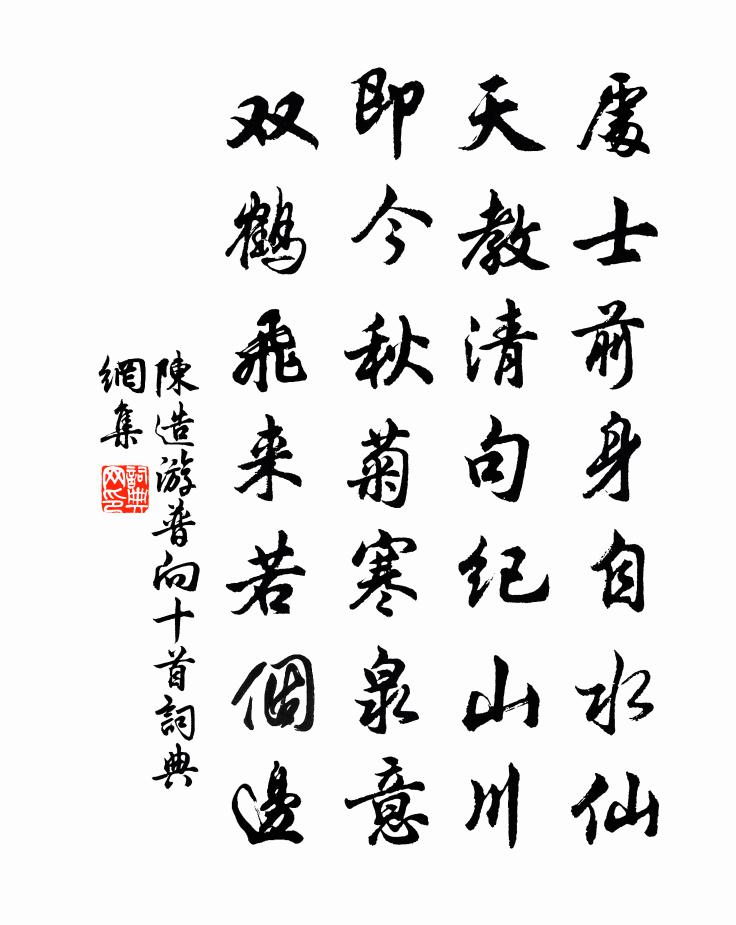 處士前身自水仙
天教清句纪山川
即今秋菊寒泉意
双鹤飛来若個邊
陳造游普向十首詞典
網集
詞典網印